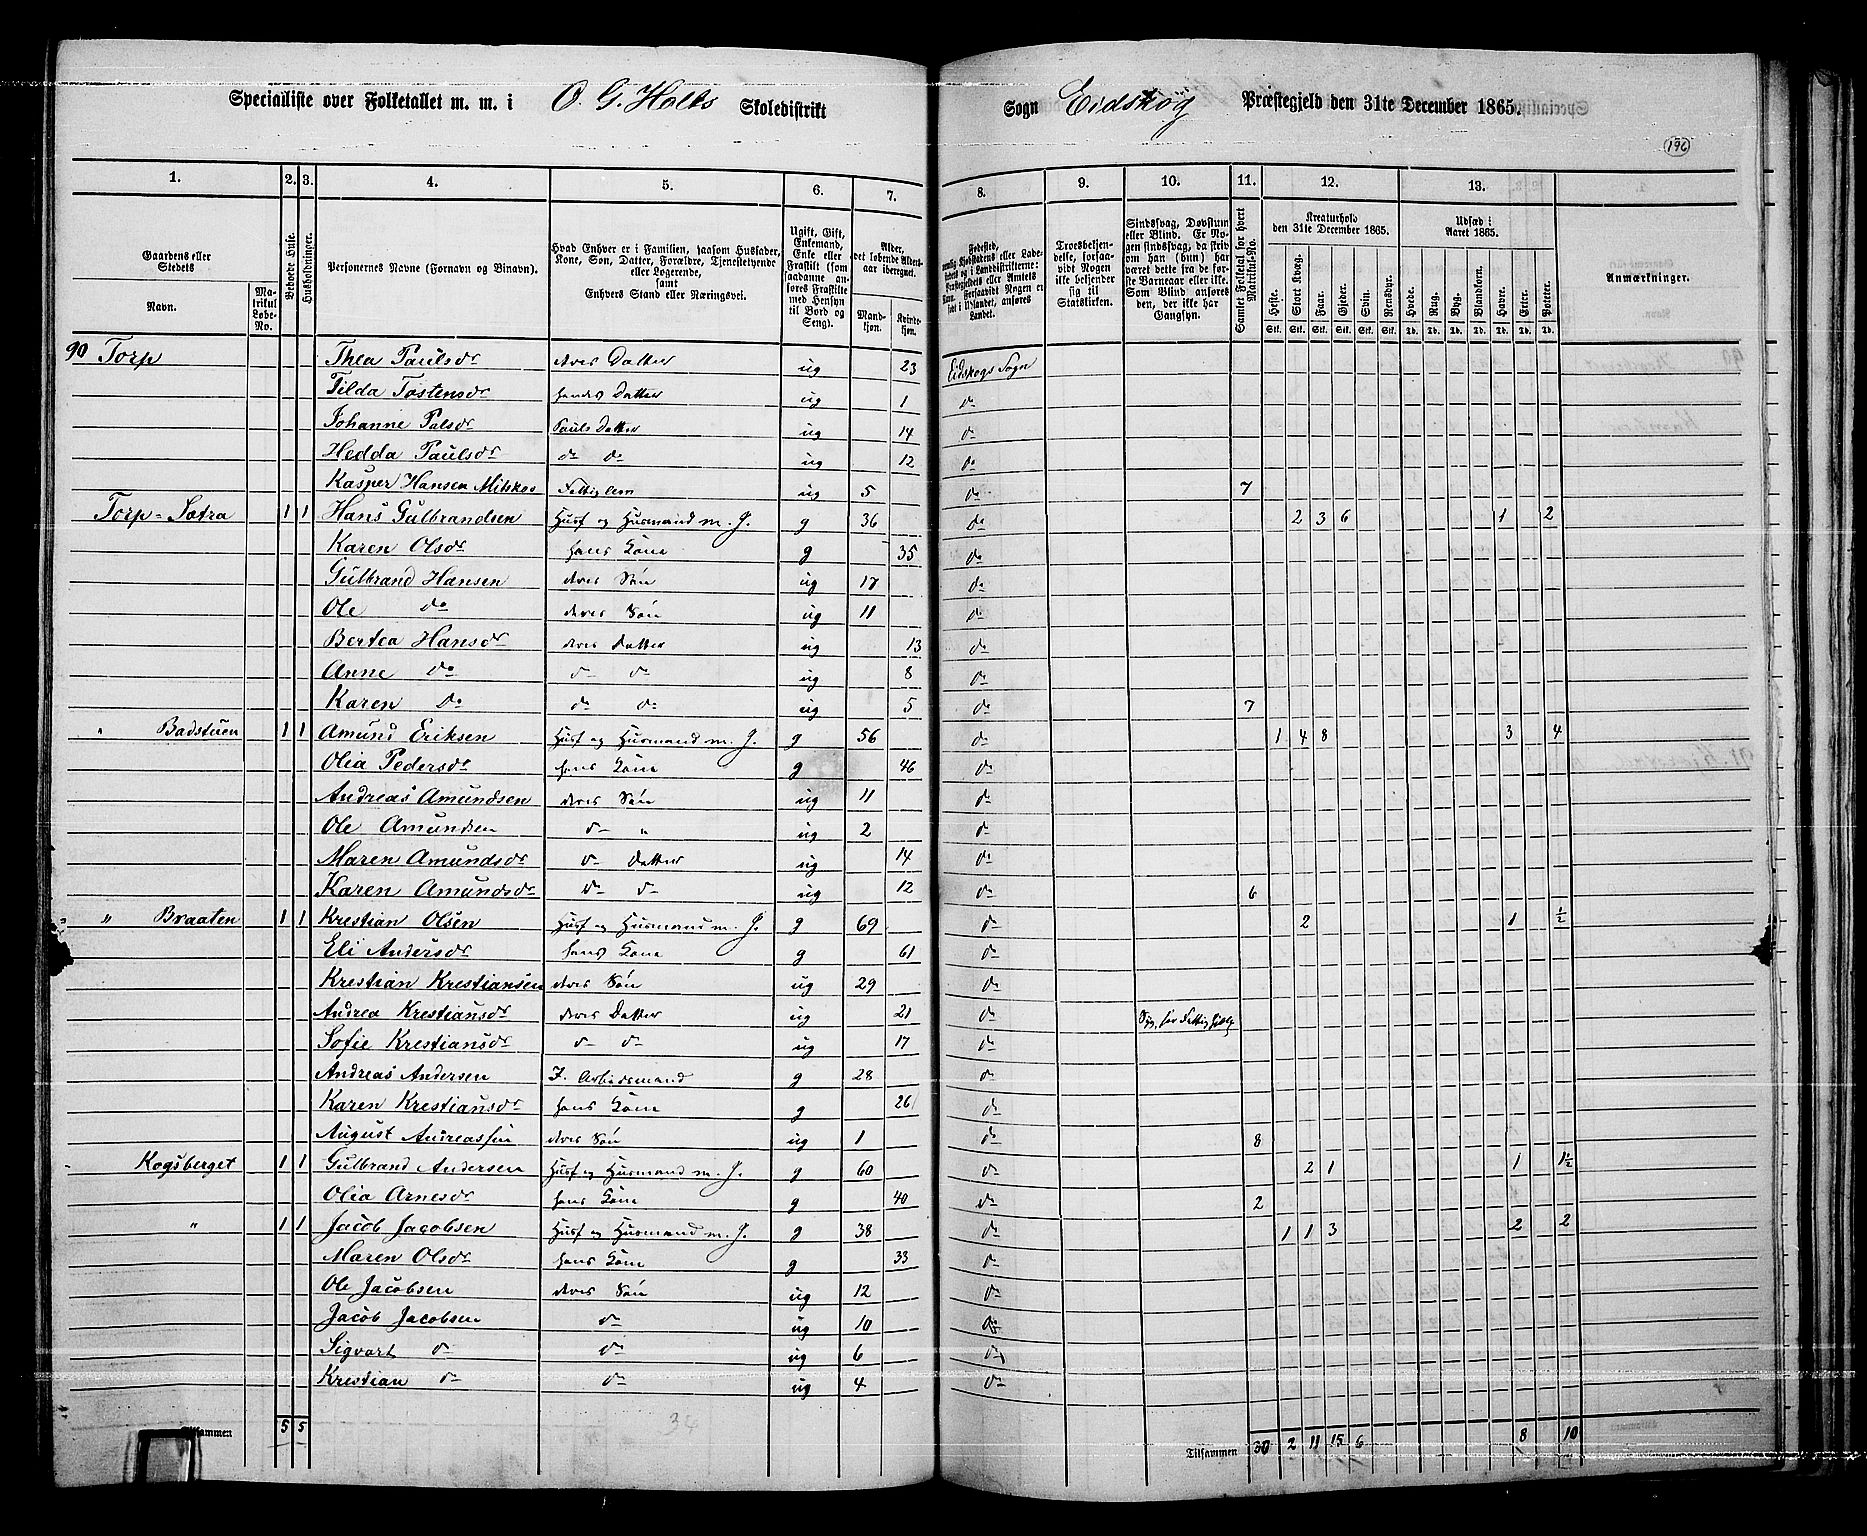 Specialliste over Folketallet m. m. i O. G. Holts Skoledistrikt Sogn Eidskog Præstegjeld den 31te December 1865.
196
1. 2. 3. 4. 5. 6. 7. 8. 9. 10. 11. 12. 13.
Gaardens eller Stedets Navn. Matrikul Løbe-No. Beboede Huse. Husholdninger. Personernes Navne (Fornavn og Binavn). Hvad Enhver er i Familien, saasom Husfader, Kone, Søn, Datter, Forældre, Tjenestetyende eller Logerende, samt Enhvers Stand eller Næringsvei. Ugift, Gift, Enkemand, Enke eller Fraskilt (som saadanne anføres Fraskilte med Hensyn til Bord og Seng). Alder, det løbende Alders-aar iberegnet. Mandkjøn. Kvindekjøn. Fødested, Troesbekjendelse, forsaavidt Nogen ikke bekjender sig til Statskirken. Sindssvag, Døvstum eller Blind. Er Nogen sindssvag, da skriv om han (hun) har været dette fra de første Barneaar eller ei. Som Blind anføres den, der ikke har Gangsyn. Samlet Folketal for hvert Matrikul-No. Kreaturhold den 31te December 1865. Heste. Stort Kvæg. Faar. Gjeder. Svin. Rensdyr. Udsæd i Aaret 1865. Hvede. Rug. Byg. Blandkorn. Havre. Erter. Poteter. Anmærkninger.
90 Torp Thea Paulsdr deres Datter ug 23 Eidskogs Sogn
Tilda Tostensdr hendes Datter ug 1 do
Johanne Palsdr Pauls Datter ug 14 do
Hedda Paulsdr do do ug 12 do
Kasper Hansen Mitskog Fattiglem ug 5 do 7
Torp-Sætra 1 1 Hans Gulbrandsen Husf og Husmand m. J. g 36 do 2 3 6 1 2
Karen Olsdr hans Kone g 35 do
Gulbrand Hansen deres Søn ug 17 do
Ole do deres Søn ug 11 do
Bertea Hansdr deres Datter ug 13 do
Anne do do do ug 8 do
Karen do do do ug 5 do 7
" Badstuen 1 1 Amund Eriksen Husf og Husmand m. J. g 56 do 1 4 8 3 4
Olia Pedersdr hans Kone g 46 do
Andreas Amundsen deres Søn ug 11 do
Ole Amundsen do " ug 2 do
Maren Amundsdr do Datter ug 14 do
Karen Amundsdr do do ug 12 do 6
" Braaten 1 1 Krestian Olsen Husf og Husmand m. J. g 69 do 2 1 ½
Eli Andersdr hans Kone g 61 do
Krestian Krestiansen deres Søn ug 29 do
Andrea Krestiansdr deres Datter ug 21 do
Sofie Krestiansdr do do ug 17 do
Andreas Andersen I. Arbeidsmand g 28 do
Karen Krestiansdr hans Kone g 26 do
August Andreassen deres Søn ug 1 do 8
Kogsberget 1 1 Gulbrand Andersen Husf og Husmand m. J. g 60 do 2 1 1 1½
Olia Arnesdr hans Kone g 40 do 2
" 1 1 Jacob Jacobsen Husf og Husmand m. J. g 38 do 1 1 3 2 2
Maren Olsdr hans Kone g 33 do
Ole Jacobsen deres Søn ug 12 do
Jacob Jacobsen do ug 10 do
Sigvart do do ug 6 do
Krestian do do ug 4 do
Tilsammen 5 5 34 Tilsammen 30 2 11 15 6 8 10